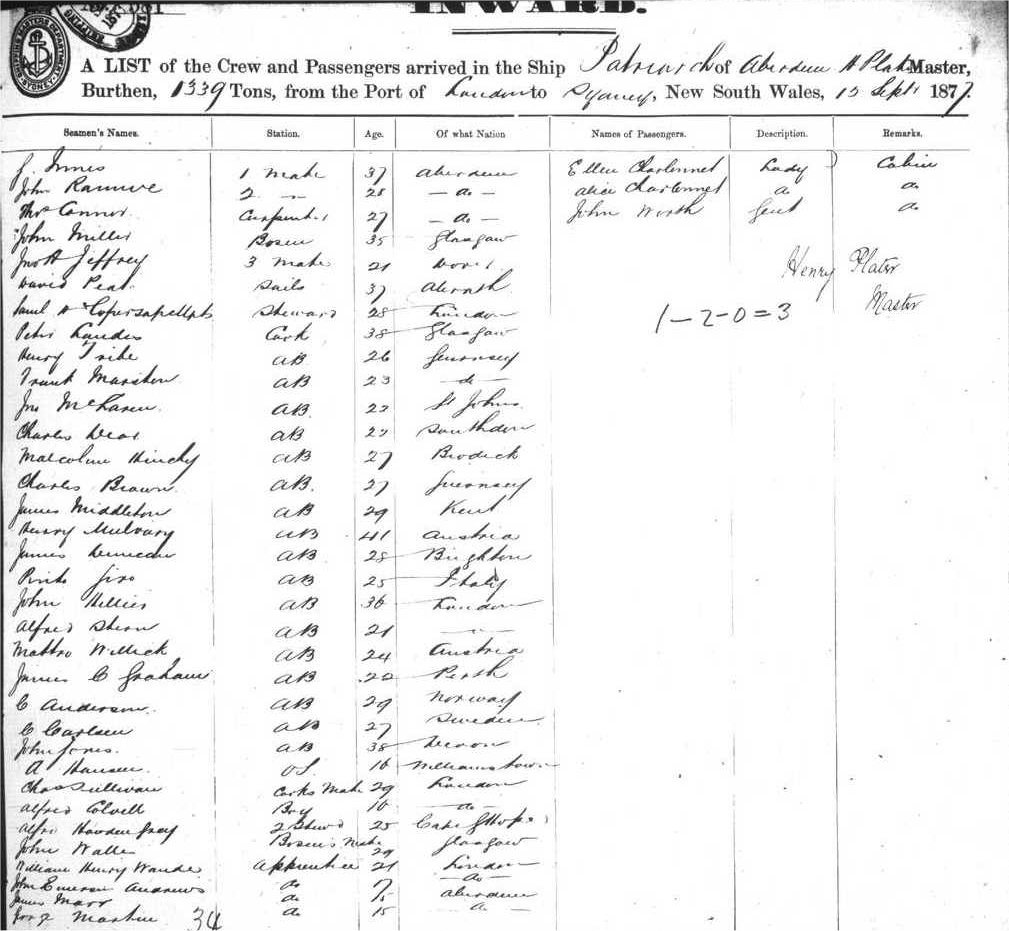 INWARD.
A LIST of the Crew and Passengers arrived in the Ship Patriarch of Aberdeen H Plater Master,
Burthen, 1339 Tons, from the Port of London to Sydney, New South Wales, 15 Sept 1877.
Seamen's Names. Station. Age. Of what Nation Names of Passengers. Description. Remarks.
Innes 1 Mate 37 Aberdeen Ellen Charbonnet Lady Cabin
John 2 — 28 — do — Alice Charbonnet do do
Thos Connor Carpenter 27 — do — John Worth Gent do
John Miller Bosen 35 Glasgow
Jno A Jeffrey 3 Mate 21 Dover
David Peat Sails 37
Henry Plater
Saml Steward 28 London
Master
1-2-0=3
Peter Cook 38 Glasgow
Henry Tribe AB 26 Guernsey
Frank AB 23 — do —
Jno McLaren AB 22 St Johns
Charles AB 22
Malcolm AB 27 Brodick
Charles Brown AB. 27 Guernsey
James Middleton AB 29 Kent
Henry AB 41 Austria
James Duncan AB 28 Brighton
AB 25 Ithaly
John Hillier AB 36 London
Alfred AB 21 — —
Mattro AB 24 Austria
James C Graham AB 22 Perth
C Anderson AB 29 Norway
C Carlsen AB 27 Sweden
John Jones. AB 38 Devon
A Hansen OS 16 Williamstown
Chas Sullivan Cooks Mate 29 London
Alfred Colvill Boy 16 — do —
Alfre Howden Gray 2 Stewd 25 Cape GHope
John Bosens Mate 29 Glasgow
William Henry Apprentice 21 London
John Emerson Andrews do 17 — do —
James Marr do 15 Aberdeen
do 15 — do —
34